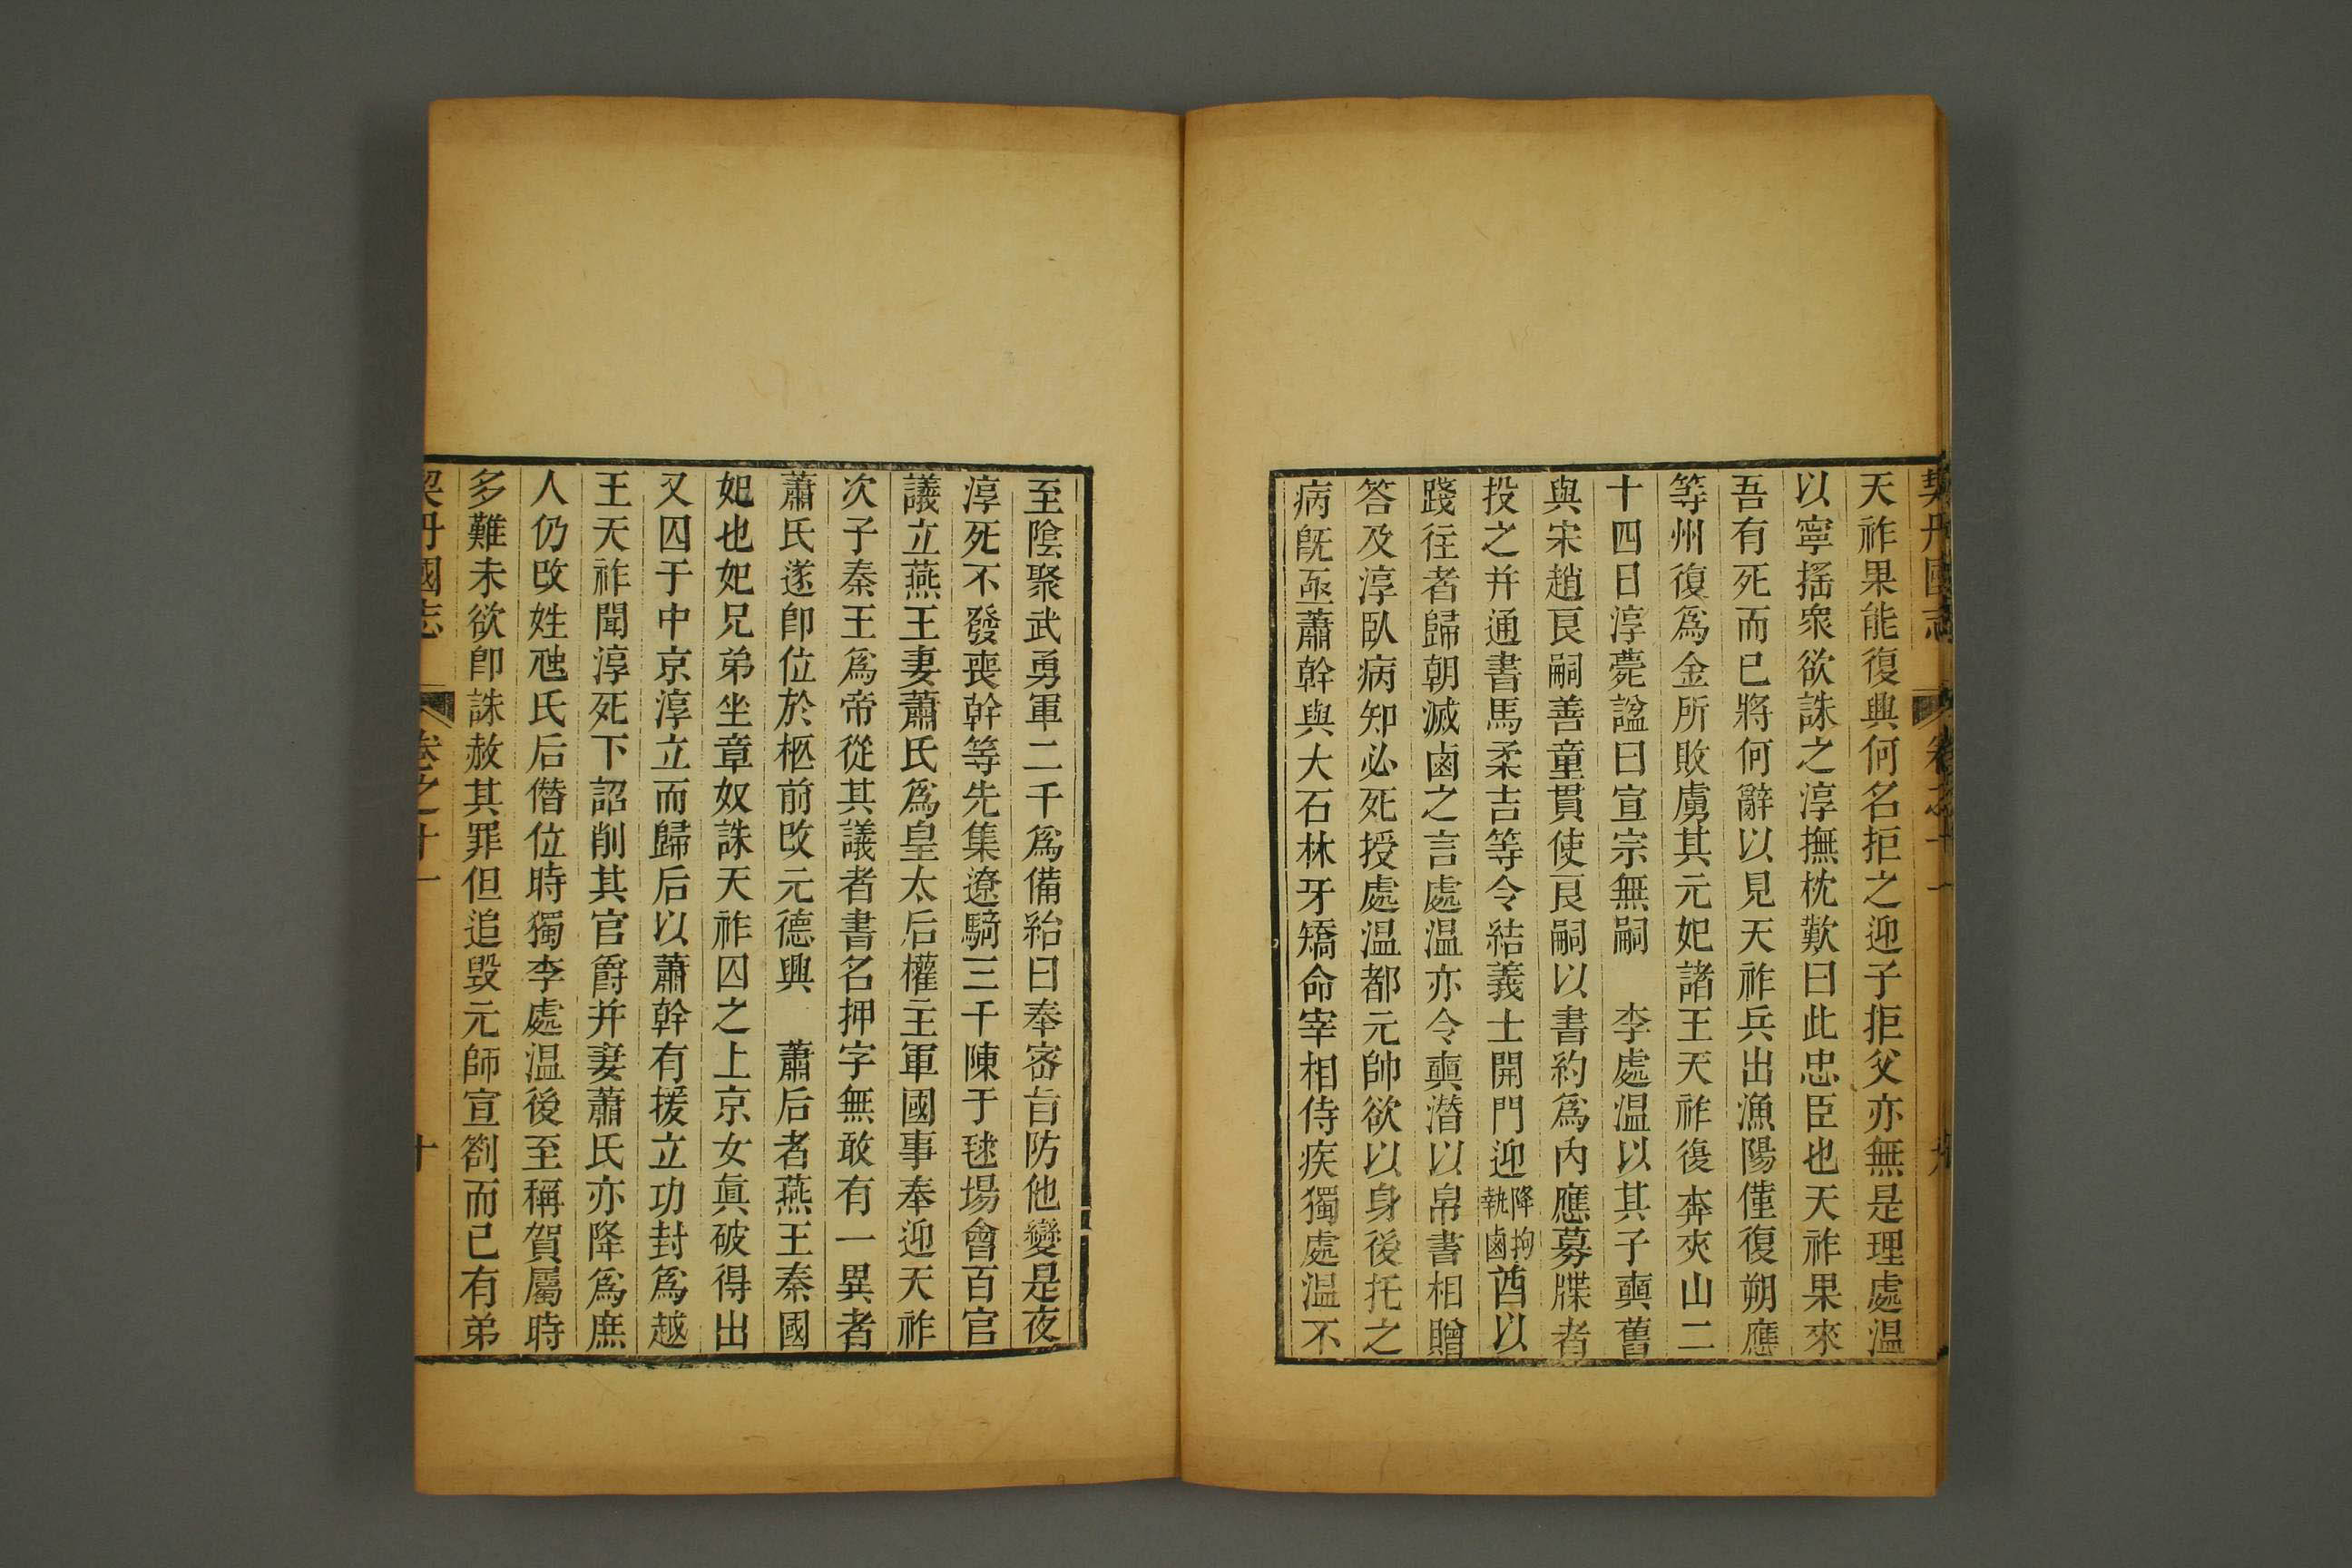 契丹國志 卷之十一 九
天祚果能復興何名拒之迎子拒父亦無是理處温
以寧搖衆欲誅之淳撫枕歎曰此忠臣也天祚果來
吾有死而已將何辭以見天祚兵出漁陽僅復朔應
等州復爲金所敗虜其元妃諸王天祚復奔夾山二
十四日淳薨諡曰宣宗無嗣　李處温以其子奭舊
與宋趙良嗣善童貫使良嗣以書約爲內應募牒者
投之并通書馬柔吉等令結義士開門迎降拘執鹵酋以
踐往者歸朝滅鹵之言處温亦令奭潛以帛書相贈
答及淳臥病知必死授處温都元帥欲以身後托之
病旣亟蕭幹與大石林牙矯命宰相侍疾獨處温不
至陰聚武勇軍二千爲備紿曰奉密旨防他變是夜
淳死不發喪幹等先集遼騎三千陳于毬場會百官
議立燕王妻蕭氏爲皇太后權主軍國事奉迎天祚
次子秦王爲帝從其議者書名押字無敢有一異者
蕭氏遂卽位於柩前改元德興　蕭后者燕王秦國
妃也妃兄弟坐章奴誅天祚囚之上京女眞破得出
又囚于中京淳立而歸后以蕭幹有援立功封爲越
王天祚聞淳死下詔削其官爵并妻蕭氏亦降爲庶
人仍改姓虺氏后僭位時獨李處温後至稱賀屬時
多難未欲卽誅赦其罪但追毀元師宣劄而已有弟
契丹國志 卷之十一 十